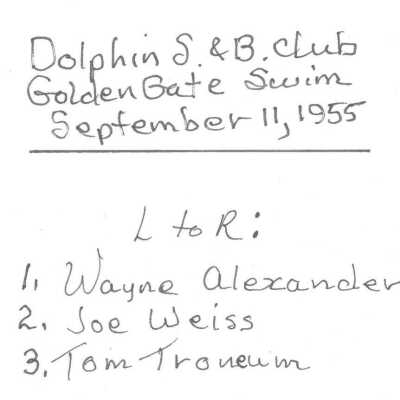 Dolphin S. & B. Club
Golden Gate Swim
September 11, 1955
L to R:
1. Wayne Alexander
2. Joe Weiss
3. Tom Troneum